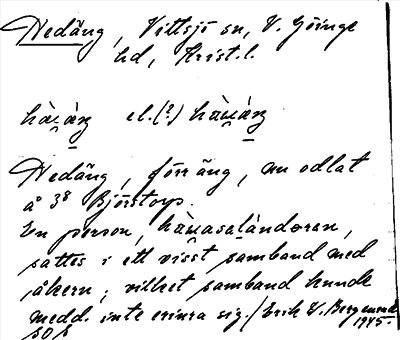 Hedäng, Vittsjö sn, V. Göinge
hd, Krist. l.
el. (?)
Hedäng, förr äng, nu odlat
å 3⁸ Björstorp.
En person,
sattes i ett visst samband med
åkern; vilket samband kunde
medd. inte erinra sig. / Erik V. Bergman
1945.
SOS